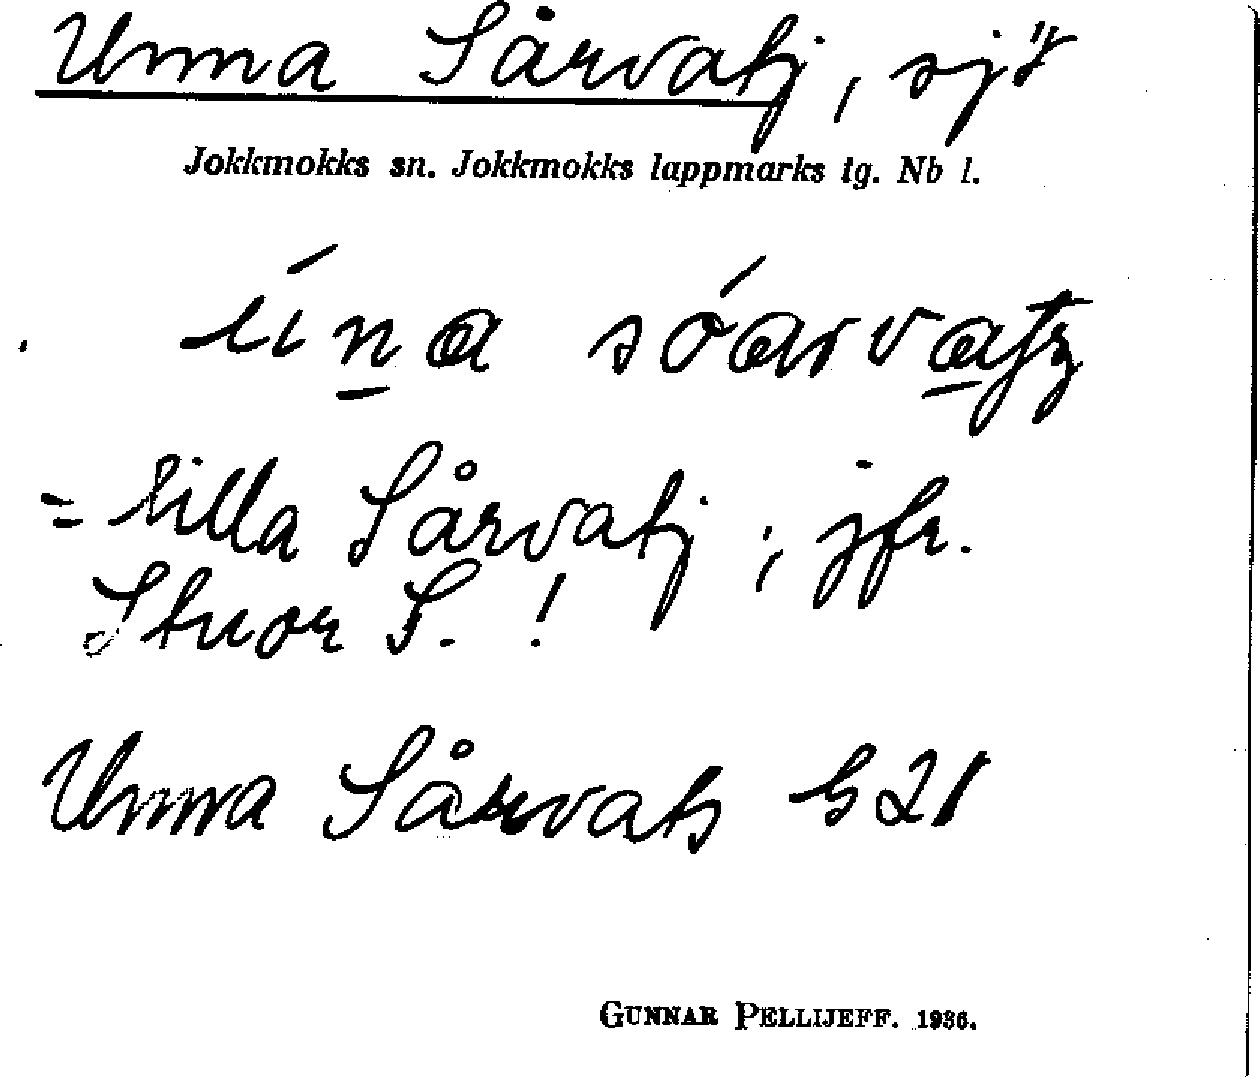 Unna Sårvatj, sjö
Jokkmokks sn. Jokkmokks lappmarks tg. Nb l.
sóarvatj
= lilla Sårvatj; jfr.
Stuor S.!
Unna Sårvats
GUNNAR PELLIJEFF. 1936.